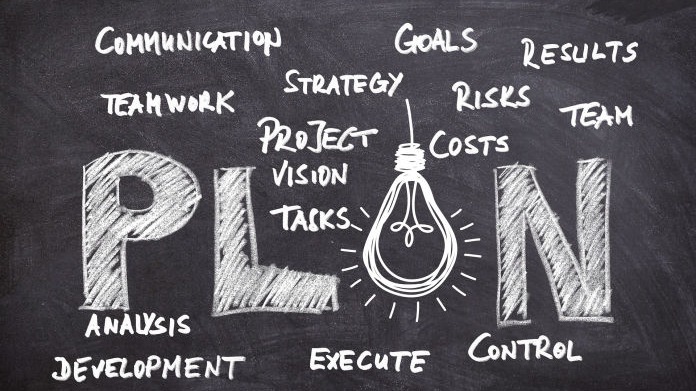 COMMUNICATION
GOALS
RESULTS
STRATEGY
TEAMWORK
RISKS
TEAM
PROJECT
COSTS
VISION
TASKS
PL N
ANALYSIS
CONTROL
DEVELOPMENT
EXECUTE